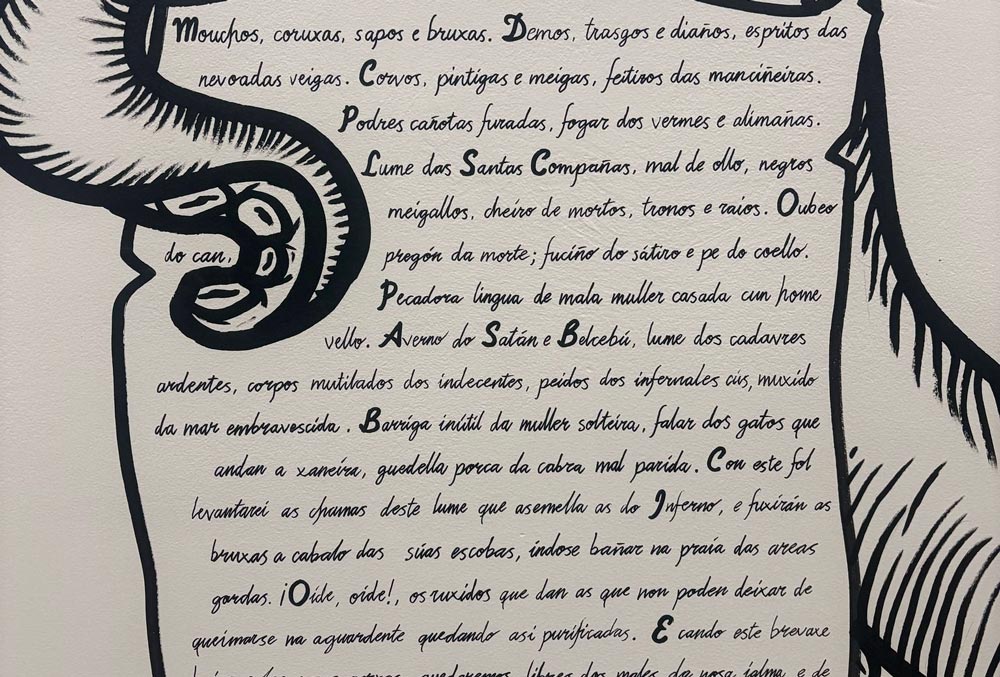 Mouchos, coruxas, sapos e bruxas. Demos, trasgos e diaños, espritos das
nevoadas veigas. Corvos, pintigas e meigas, feitizos das manciñeiras.
Podres cañotas furadas, fogar dos vermes e alimañas.
Lume das Santas Compañas, mal de ollo, negros
meigallos, cheiro de mortos, tronos e raios. Oubeo
do can, pregón da morte; fuciño do sátiro e pe do coello.
Pecadora lingua de mala muller casada cun home
vello. Averno do Satán e Belcebú, lume dos cadavres
ardentes, corpos mutilados dos indecentes, peidos dos infernales cús, muxido
da mar embravescida. Barriga inútil da muller solteira, falar dos gatos que
andan a xaneira, guedella porca da cabra mal parida. Con este fol
levantarei as chamas deste lume que asemella as do Inferno, e fuxirán as
bruxas a cabalo das súas escobas, índose bañar na praia das areas
gordas. ¡Oíde, oíde!, os ruxidos que dan as que non poden deixar de
queimarse na aguardente quedando así purificadas. E cando este brevaxe
quedaremos libres dos males da nosa ialma e de